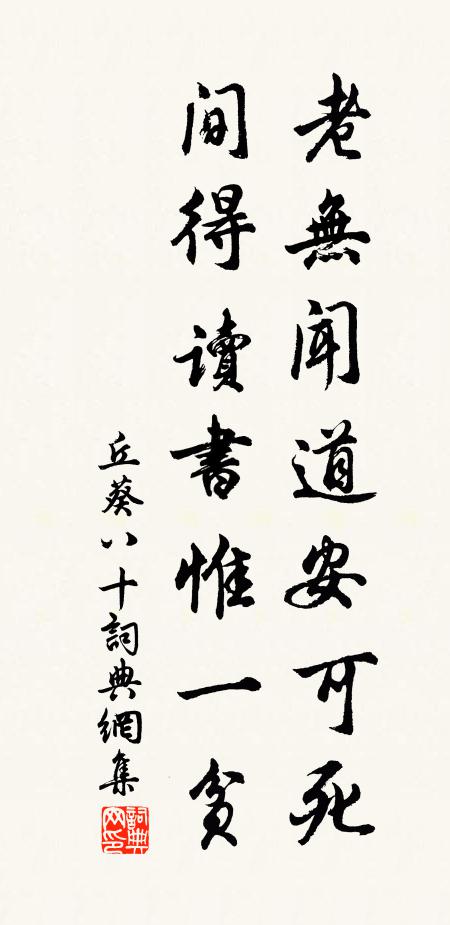 老無聞道安可死
间得讀書惟一貧
丘葵八十詞典網集
詞典
网印